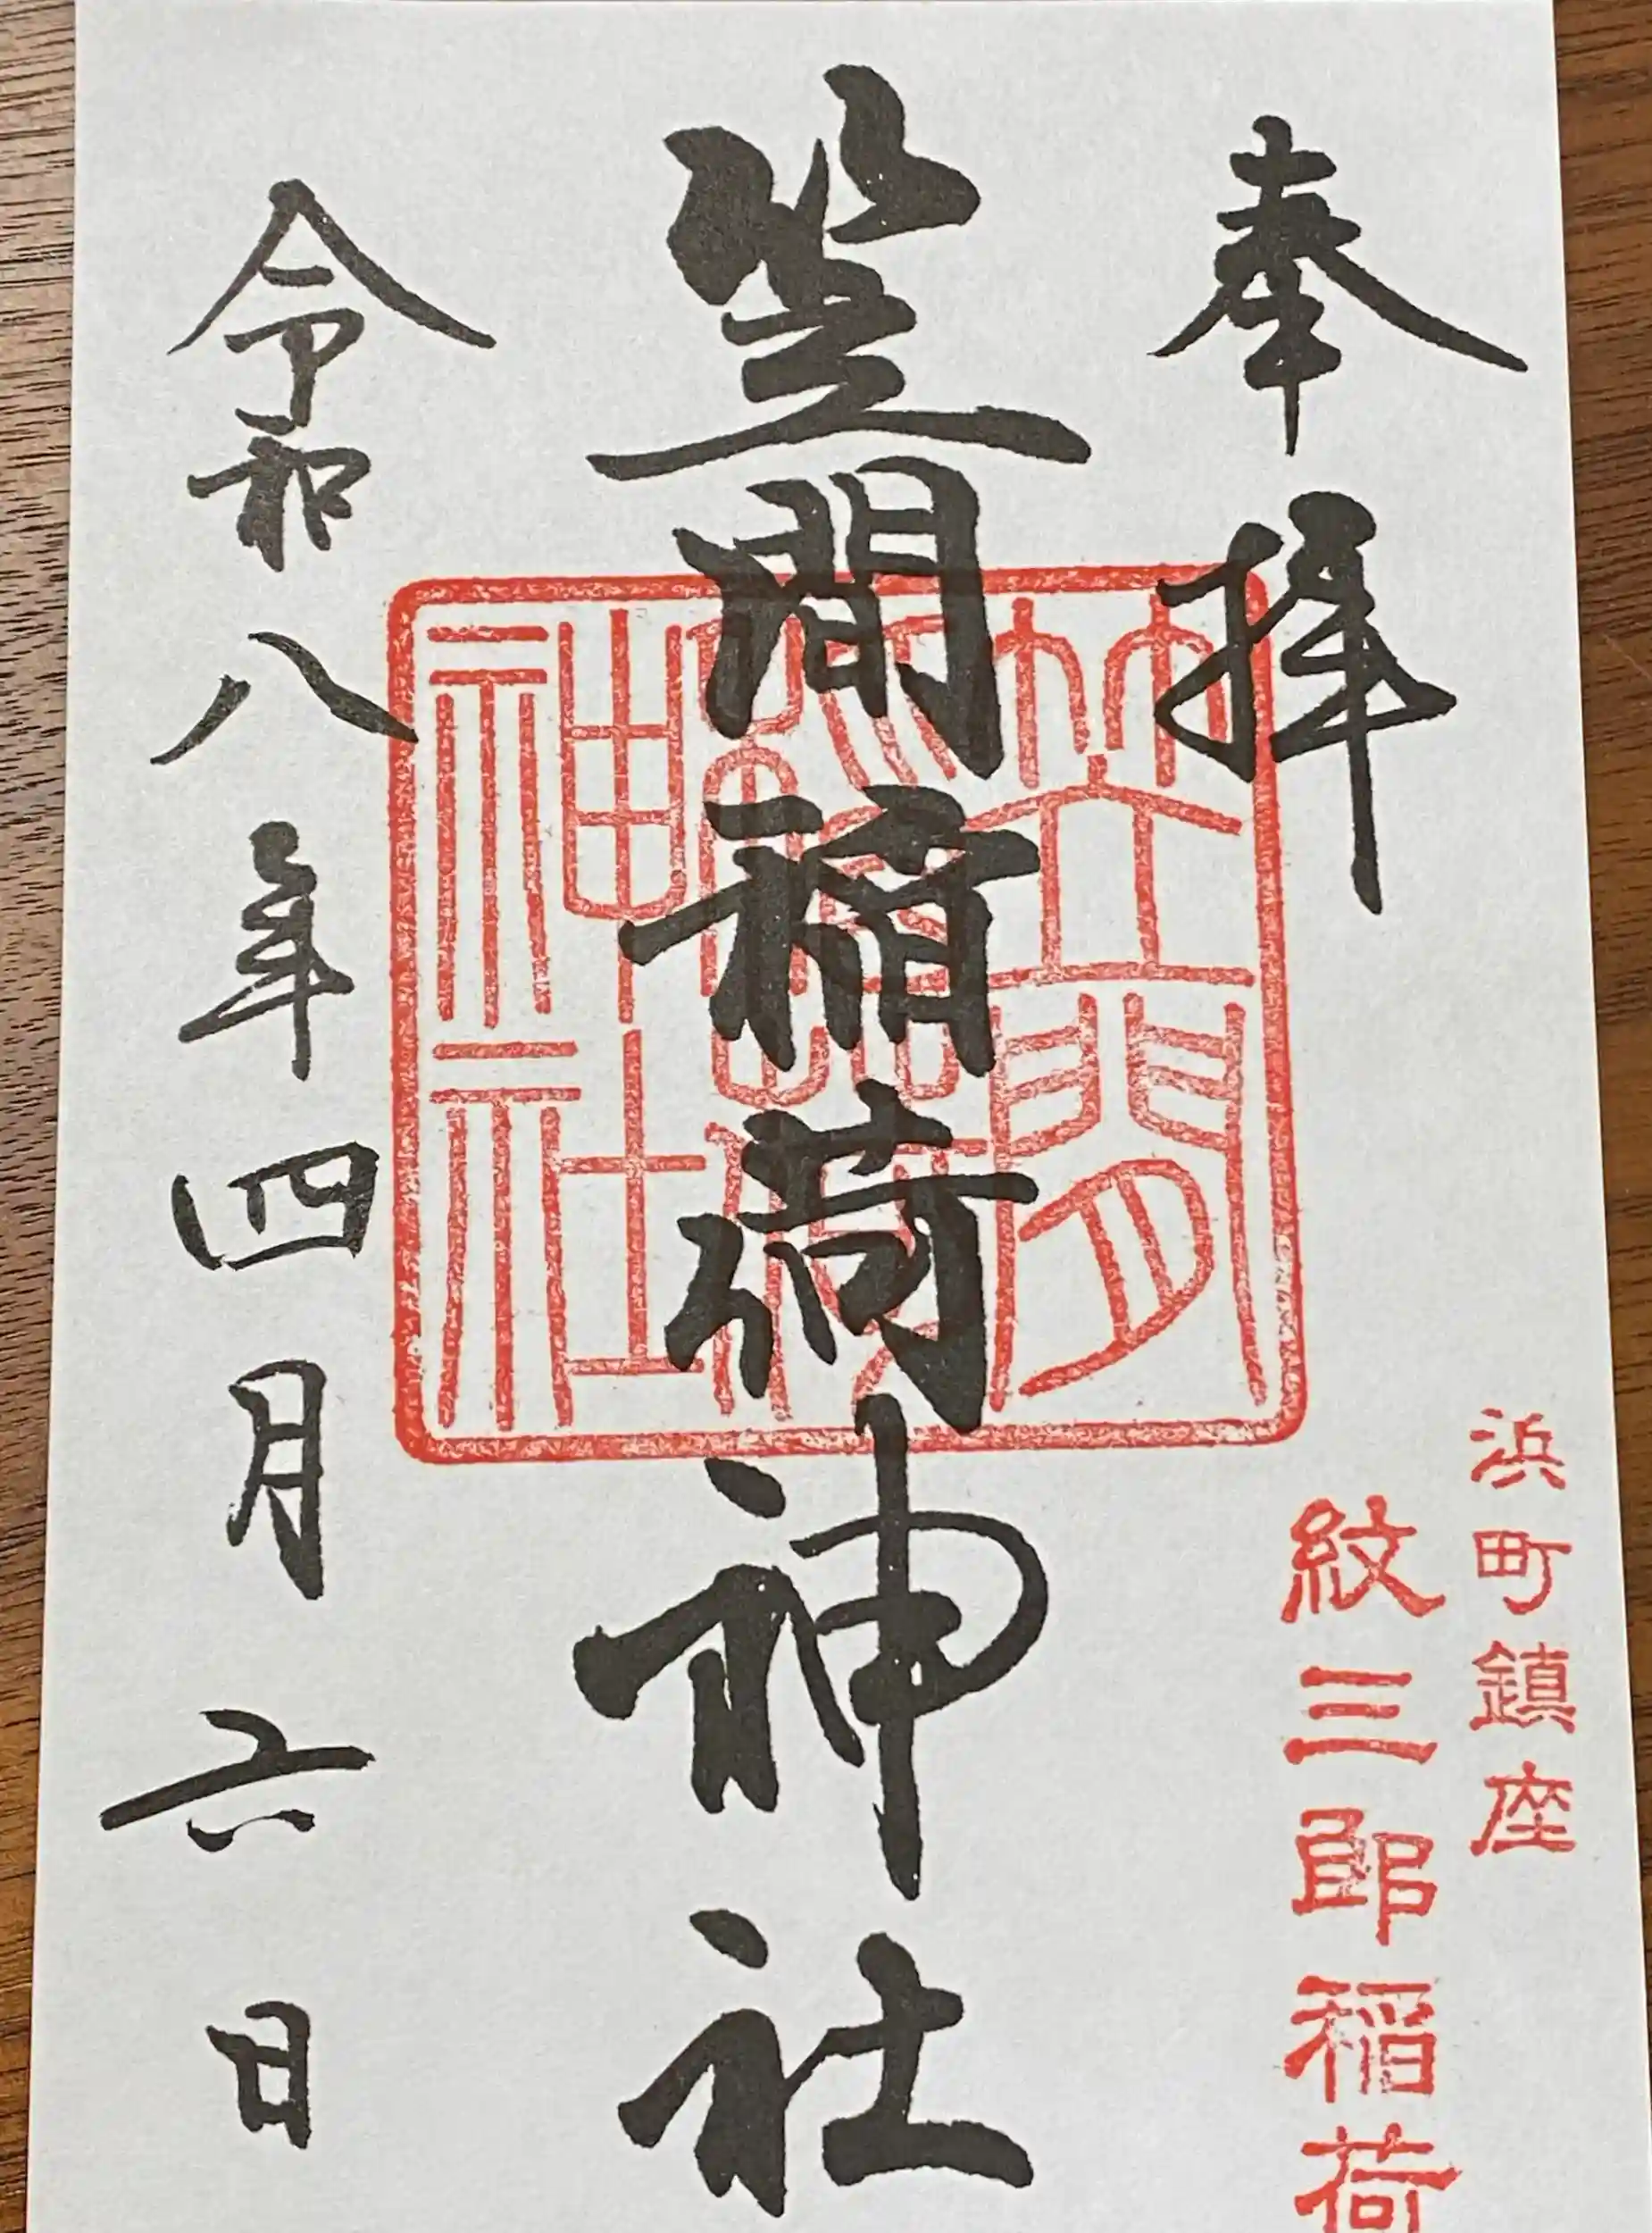 奉拝
浜町鎮座
紋三郎稲荷
笠間稲荷神社
笠間稲荷神社
令和八年四月六日